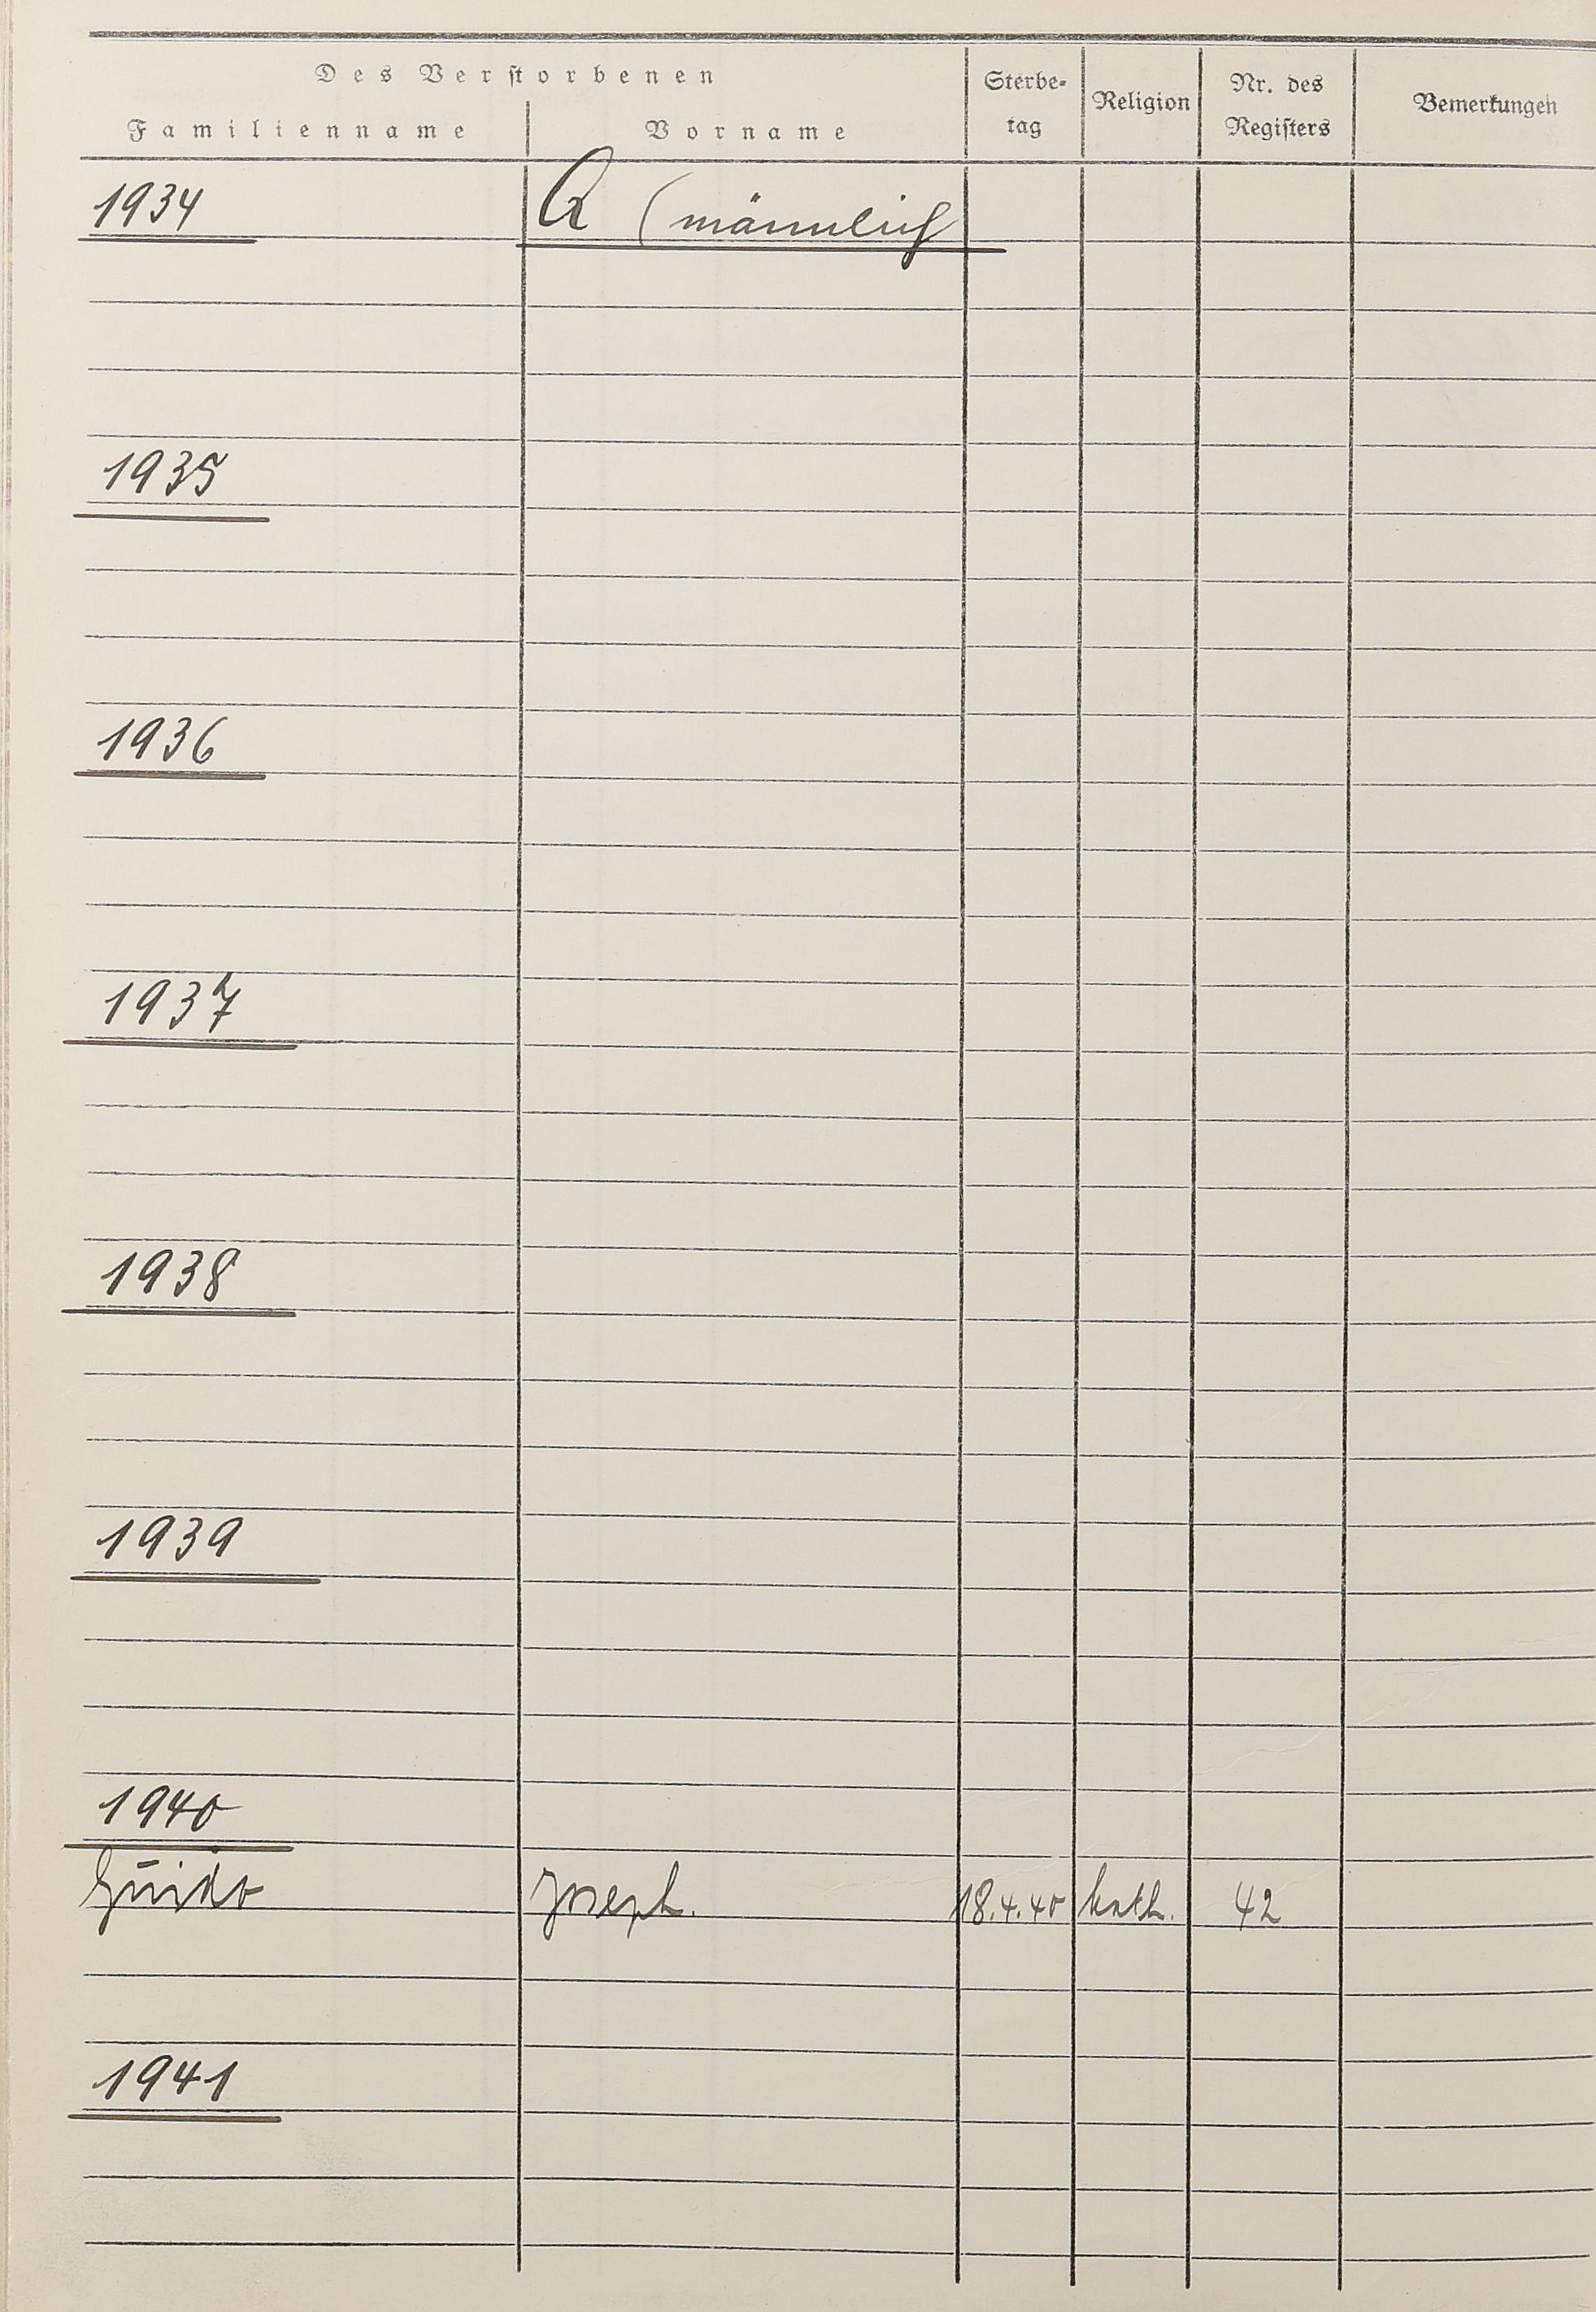 Des Verstorbenen
Familienname
Vorname
Sterbe-
tag
Religion
Nr. des
Registers
Bemerkungen
1934 Q (männlich
1935
1936
1937
1938
1939
1940
Quido Joseph. 18.4.40 kath. 42
1941